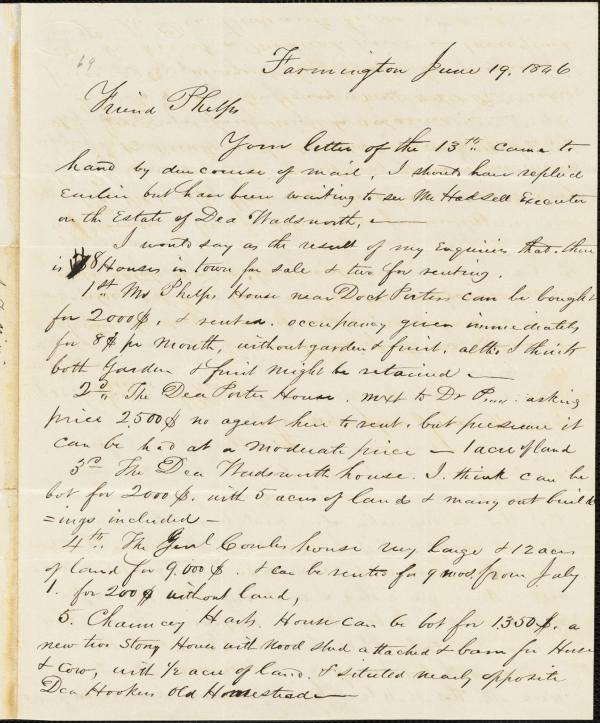 69
Farmington June 19, 1846
Friend Phelps
Your letter of the 13th came to
hand by due course of mail, I should have replied
Earlier but have been waiting to see Mr Hadsell Executor
on the Estate of Dea Wadsworth, —
I would say as the result of my Enquiries that there
is 8 Houses in town for sale & two for renting.
1st Mr Phelps House near Doct Porters can be bought
for 2000$, & rented. occupancy given immediately
for 8$ pr Month, without garden & fruit, altho I think
both Garden & fruit might be retained —
2d The Dea Porter House. next to Dr P..... asking
price 2500$ no agent here to rent, but presume it
can be had at a moderate price — 1 acre of land
3rd The Dea Wadsworth house. I think can be
bot for 2000$. with 5 acres of land & many out build
=ings included —
4th The Genl Cowles house very large & 12 acres
of land for 9.000$. & can be rented for 9 mos. from July
1. for 200$ without land,
5. Chauncey Hart. House can be bot for 1350$. a
new two Story House with wood shed attached & barn for Horse
& Cow, with 1/2 acre of land. & situted nearly opposite
Dea Hookers Old Homestead —